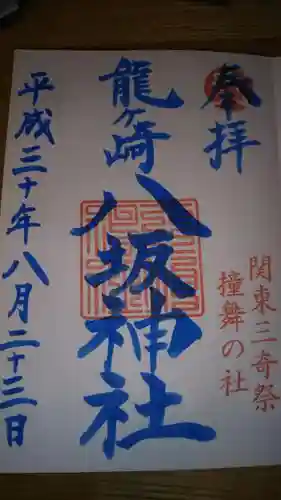 奉拝
関東三奇祭
撞舞の社
龍ヶ崎
八坂神社
平成三十年八月二十三日